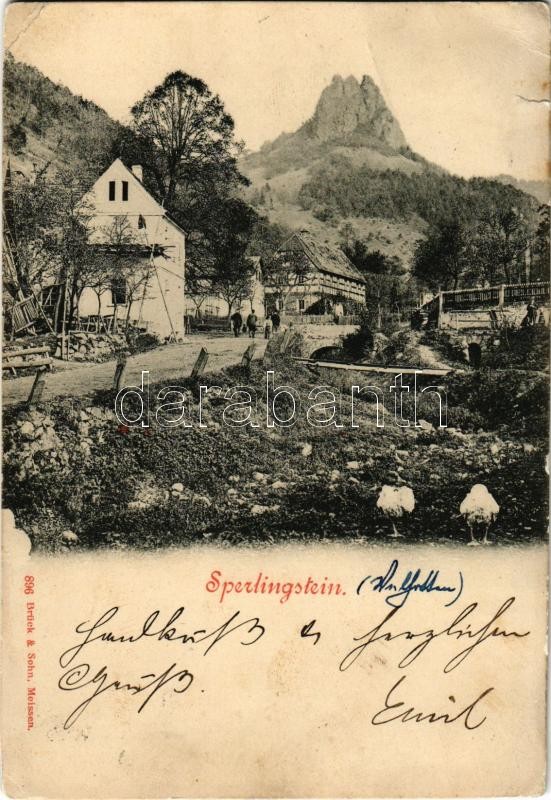 darabanth
Sperlingstein.
Handkuß & herzlichen
Gruß.
Emil
896 Brück & Sohn, Meissen.